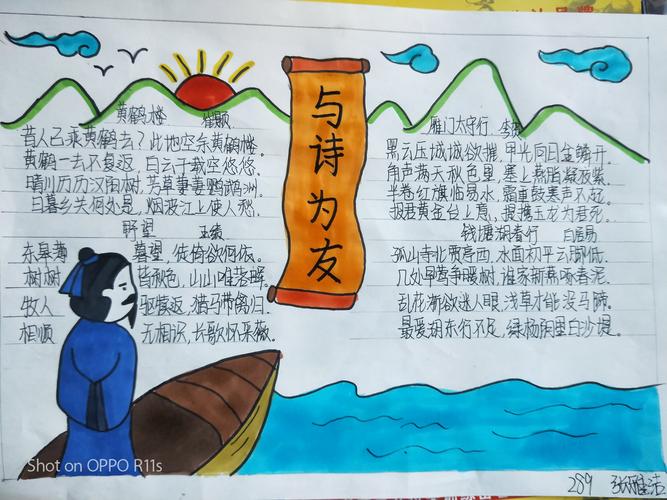 与诗为友
黄鹤楼 崔颢
昔人已乘黄鹤去?此地空余黄鹤楼。
黄鹤一去不复返,白云千载空悠悠。
晴川历历汉阳树,芳草萋萋鹦鹉洲。
日暮乡关何处是,烟波江上使人愁。
野望 王绩
东皋薄暮望,徒倚欲何依。
树树皆秋色,山山唯落晖。
牧人驱犊返,猎马带禽归。
相顾无相识,长歌怀采薇。
雁门太守行 李贺
黑云压城城欲摧,甲光向日金鳞开。
角声满天秋色里,塞上燕脂凝夜紫。
半卷红旗临易水,霜重鼓寒声不起。
报君黄金台上意,提携玉龙为君死。
钱塘湖春行 白居易
孤山寺北贾亭西,水面初平云脚低。
几处早莺争暖树,谁家新燕啄春泥。
乱花渐欲迷人眼,浅草才能没马蹄。
最爱湖东行不足,绿杨阴里白沙堤。
Shot on OPPO R11s
289